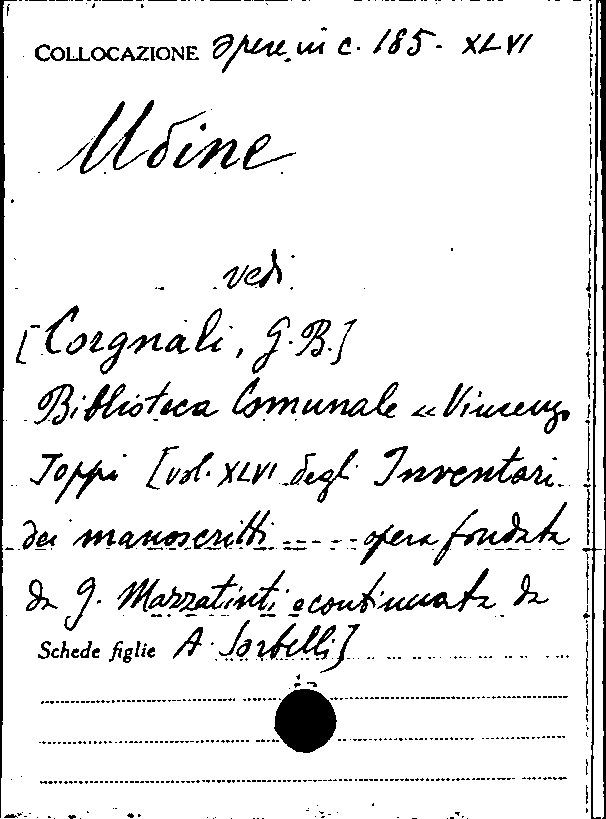 COLLOCAZIONE Opere in c. 185 - XLVI
Udine
vedi
[Corgnali, G.B.]
Biblioteca Comunale « Vincenzo
Joppi [vol. XLVI degli Inventari
dei manoscritti ..... opera fondata
da G. Mazzatinti e continuata da
Schede figlie A. Sorbelli]